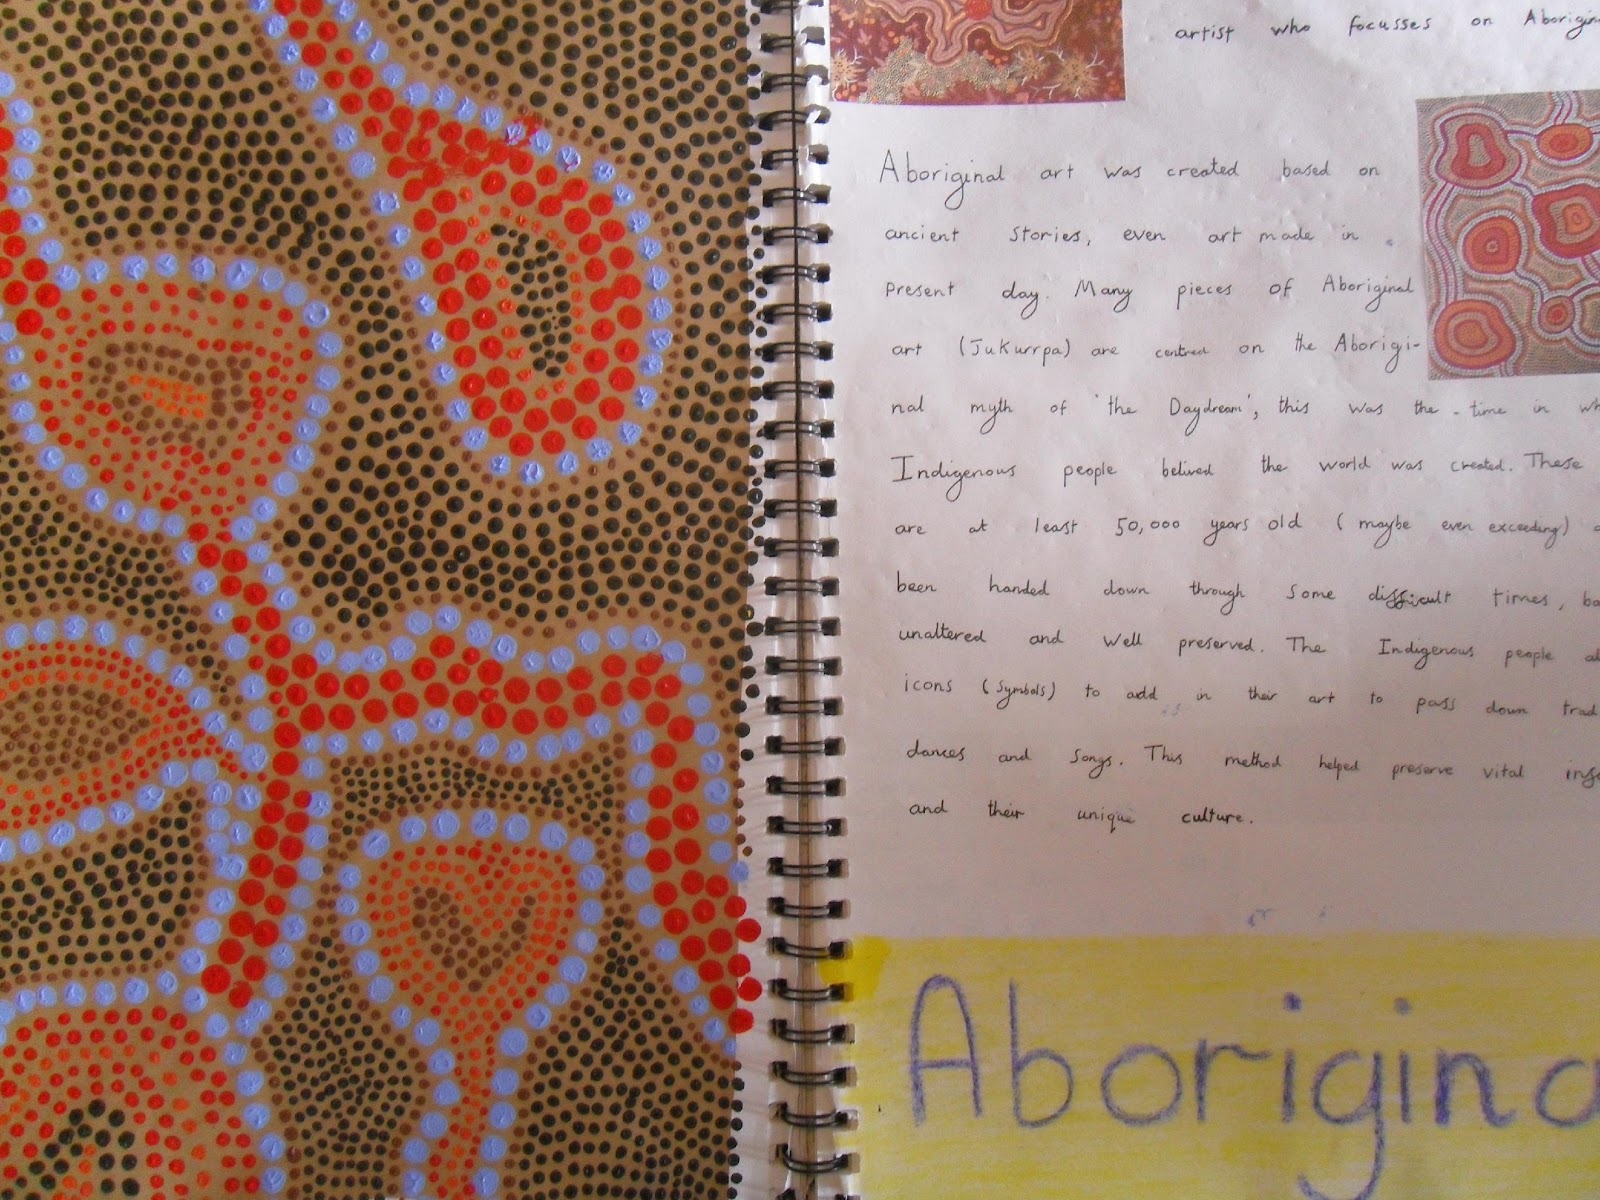 artist who focusses on Aborigin
Aboriginal art was created based on
ancient stories, even art made in
present day. Many pieces of Aboriginal
art (Jukurrpa) are centred on the Aborigi-
nal myth of 'the Daydream', this was the time in wh
Indigenous people belived the world was created. These
are at least 50,000 years old (maybe even exceeding)
been handed down through some difficult times, ba
unaltered and well preserved. The Indigenous people al
icons (symbols) to add in their art to pass down trad
dances and songs. This method helped preserve vital
and their unique culture.
Aborigina